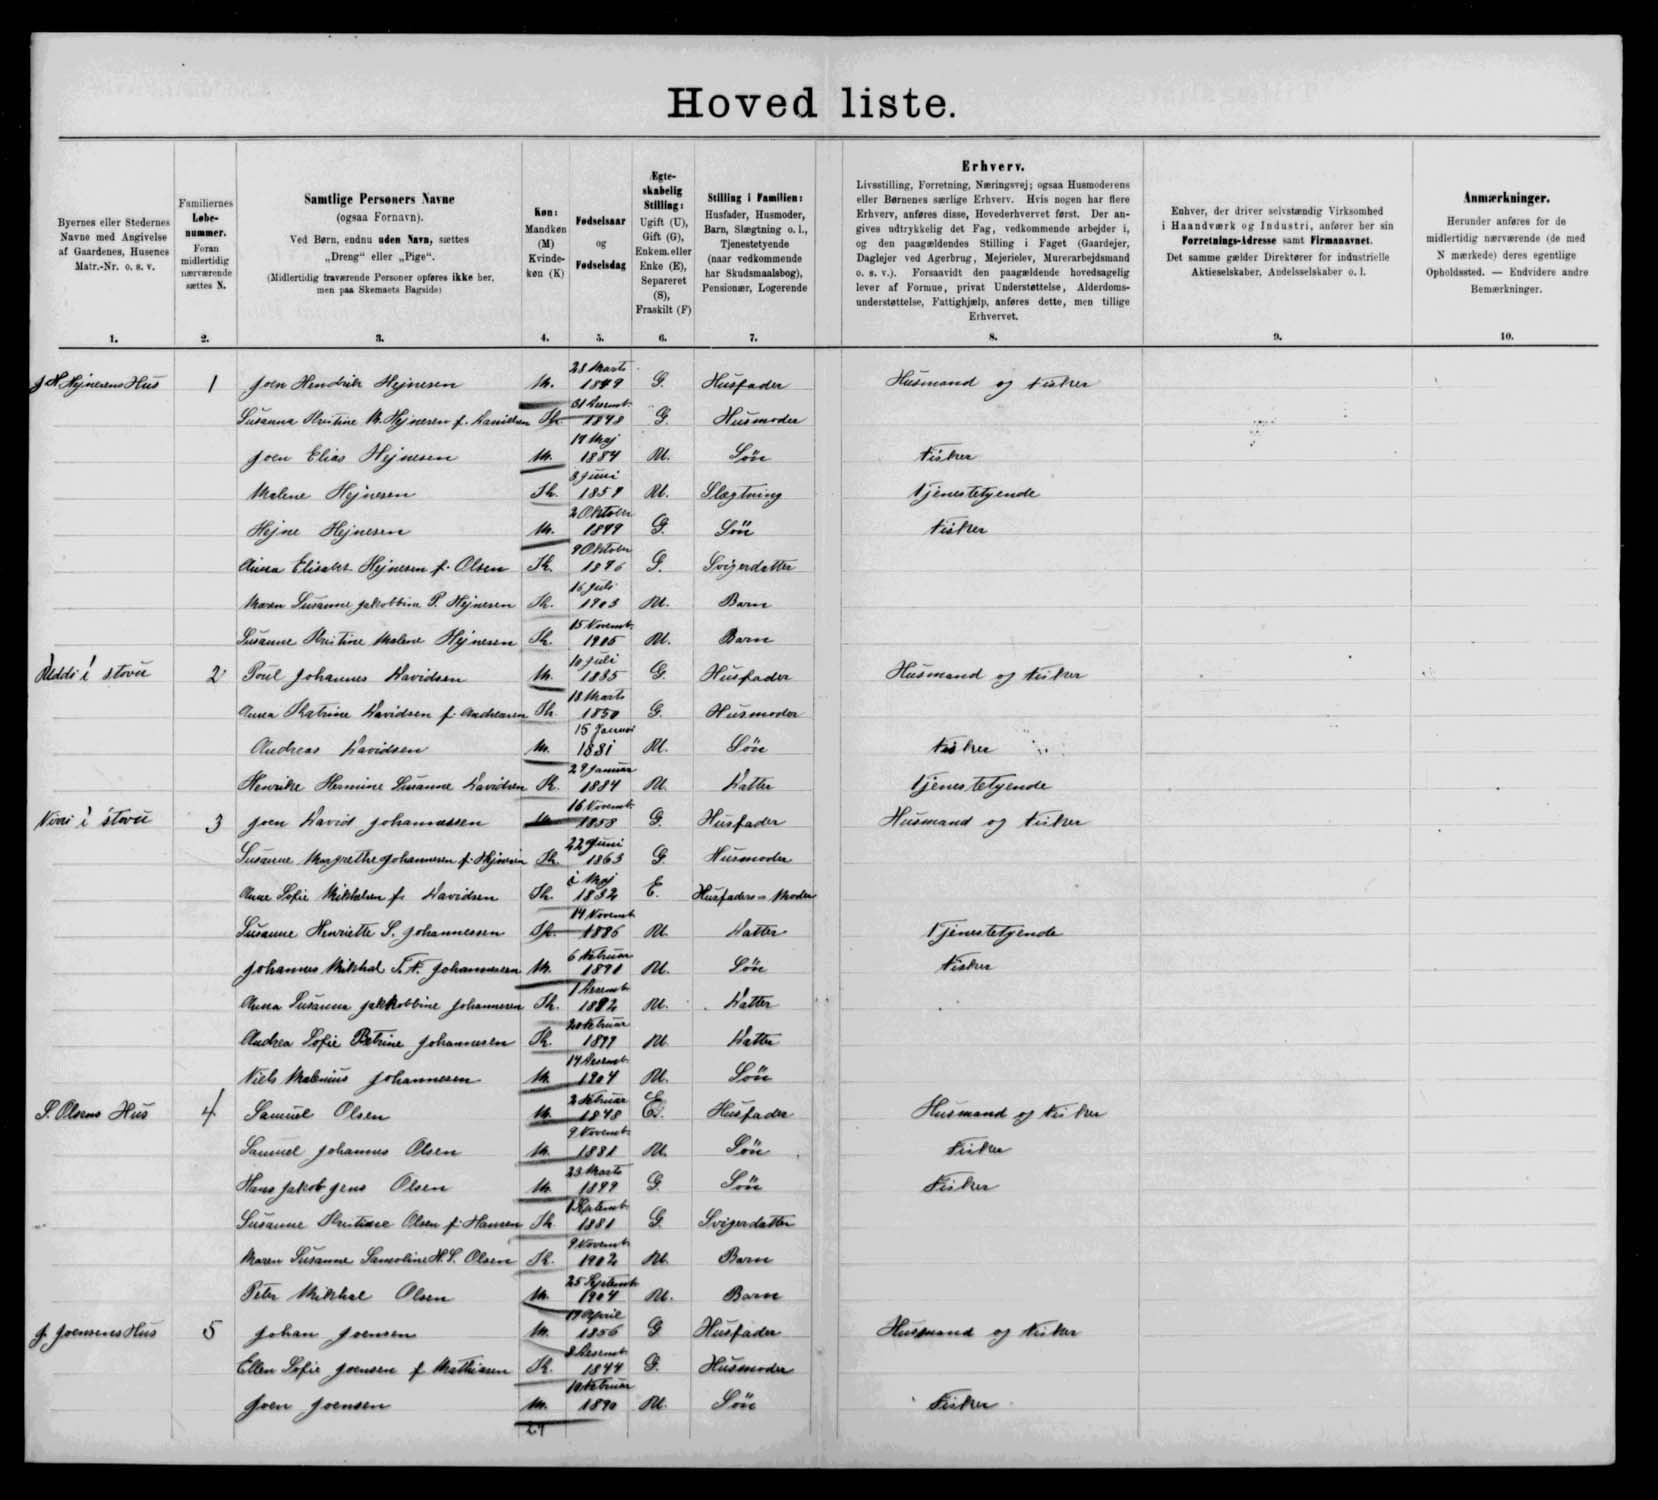 Hoved liste.
Byernes eller Stedernes
Navne med Angivelse
af Gaardenes, Husenes
Matr.-Nr. o. s. v.
1.
Familiernes
Løbe-
nummer.
Foran
midlertidig
nærværende
sættes N.
2.
Samtlige Personers Navne
(ogsaa Fornavn).
Ved Børn, endnu uden Navn, sættes
„Dreng“ eller „Pige“.
(Midlertidig fraværende Personer opføres ikke her,
men paa Skemaets Bagside)
3.
Køn:
Mandkøn
(M)
Kvinde-
køn (K)
4.
Fødselsaar
og
Fødselsdag
5.
Ægte-
skabelig
Stilling:
Ugift (U),
Gift (G),
Enkem. eller
Enke (E),
Separeret
(S),
Fraskilt (F)
6.
Stilling i Familien:
Husfader, Husmoder,
Barn, Slægtning o. l.,
Tjenestetyende
(naar vedkommende
har Skudsmaalsbog),
Pensionær, Logerende
7.
Erhverv.
Livsstilling, Forretning, Næringsvej; ogsaa Husmoderens
eller Børnenes særlige Erhverv. Hvis nogen har flere
Erhverv, anføres disse, Hovederhvervet først. Der an-
gives udtrykkelig det Fag, vedkommende arbejder i,
og den paagældendes Stilling i Faget (Gaardejer,
Daglejer ved Agerbrug, Mejerielev, Murerarbejdsmand
o. s. v.). Forsaavidt den paagældende hovedsagelig
lever af Formue, privat Understøttelse, Alderdoms-
understøttelse, Fattighjælp, anføres dette, men tillige
Erhvervet.
8.
Enhver, der driver selvstændig Virksomhed
i Haandværk og Industri, anfører her sin
Forretnings-Adresse samt Firmanavnet.
Det samme gælder Direktører for industrielle
Aktieselskaber, Andelsselskaber o. l.
9.
Anmærkninger.
Herunder anføres for de
midlertidig nærværende (de med
N mærkede) deres egentlige
Opholdssted. — Endvidere andre
Bemærkninger.
10.
J H Hejnesens Hus 1 Joen Hendrik Hejnesen M. 28 Marts 1849 G. Husfader Husmand og Fisker
Susanna Kristine M. Hejnesen f. Danielsen K. 31 Desemb. 1848 G. Husmoder
Joen Elias Hejnesen M. 1884 U. Søn Fisker
Malene Hejnesen K. 3 Juni U. Slægtning Tjenestetyende
Hejne Hejnesen M. 2 Oktober G. Søn Fisker
Anna Elisabet Hejnesen f. Olsen K. 9 Oktober 1876 G. Svigerdatter
Maren Susanne Jakobbine P. Hejnesen K. 16 Juli 1903 U. Barn
Susanne Kristine Malene Hejnesen K. 15 Novemb. 1905 U. Barn
i stovu 2 Poul Johannes Davidsen M. 10 Juli 1835 G. Husfader Husmand og Fisker
Anna Katrine Davidsen f. Andreasen K. 18 Marts 1850 G. Husmoder
Andreas Davidsen M. 15 Januar 1881 U. Søn Fisker
Henrike Hermine Susanne Davidsen K. 29 Januar 1884 U. Datter Tjenestetyende
i stovu 3 Joen David Johannessen M. 16 Novemb. 1858 G. Husfader Husmand og Fisker
Susanne Margrethe Johannesen f. Hejnesen K. 22 Juni 1863 G. Husmoder
Anne Sofie Mikkelsen f. Davidsen K. Maj 1832 E. Husfaders Moder
Susanne Henriette S. Johannessen K. 14 Novemb. 1886 U. Datter Tjenestetyende
Johannes Mikkal Johannesen M. 6 Februar 1891 U. Søn Fisker
Anna Susanna Jakkobbine Johannesen K. 1 Desemb. U. Datter
Andrea Sofie Petrine Johannesen K. Februar U. Datter
Niels Malenius Johannesen M. 14 Desemb. 1904 U. Søn
S. Olsens Hus 4 Samuel Olsen M. 2 Februar 1848 E. Husfader Husmand og Fisker
Samuel Johannes Olsen M. 9 Novemb. 1881 U. Søn Fisker
Hans Jakob Jens Olsen M. 23 Marts G. Søn Fisker
Susanne Kristine Olsen f. Hansen K. Septemb. 1881 G. Svigerdatter
Maren Susanne Samoline H. S. Olsen K. 9 Novemb. 1902 U. Barn
Peter Mikkal Olsen M. 25 Septemb. 1904 U. Barn
J. Joensens Hus 5 Johan Joensen M. April 1856 G Husfader Husmand og Fisker
Ellen Sofie Joensen f Mathiasen K. 8 Desemb. 1844 G. Husmoder
Joen Joensen M. 10 Februar 1890 U. Søn Fisker